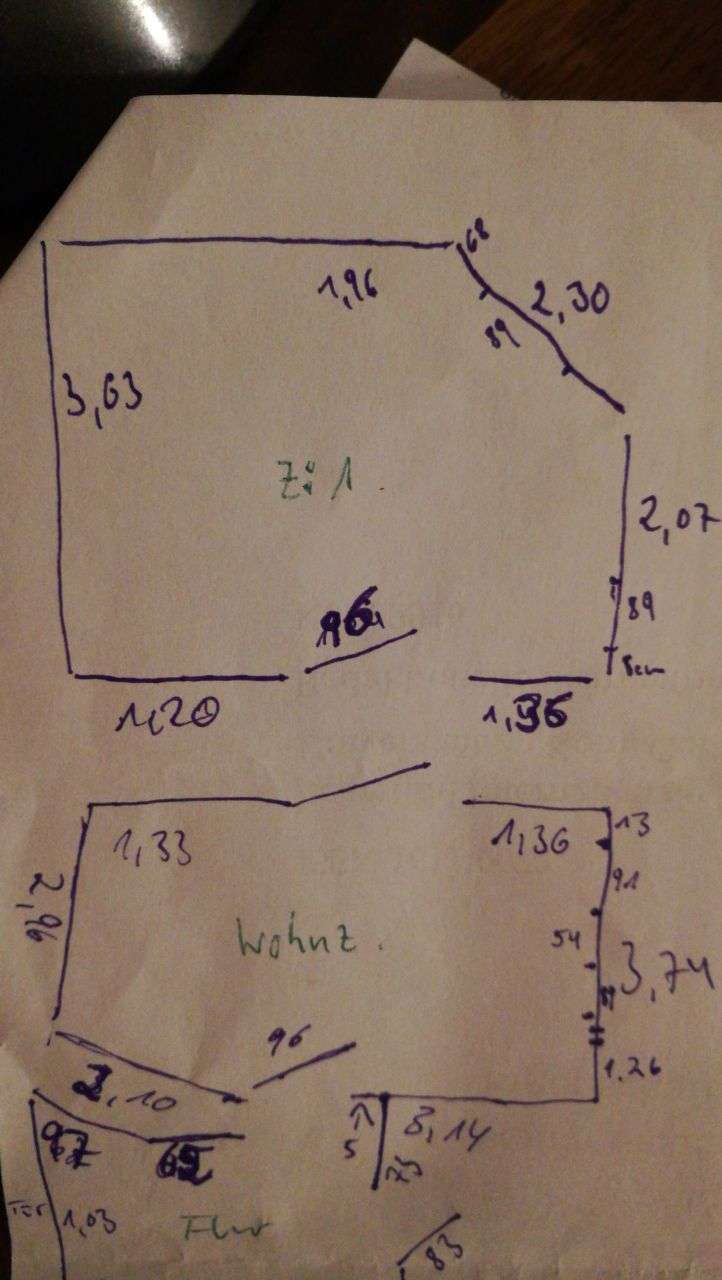 68
1,96
2,30
89
3,63
Zi 1
2,07
96
89
8cm
1,20
1,36
1,33
1,36
13
2,96
91
Wohnz.
54
3,74
96
1,26
2,10
3,14
67
62
5
75
Tür
1,03
Flur
83